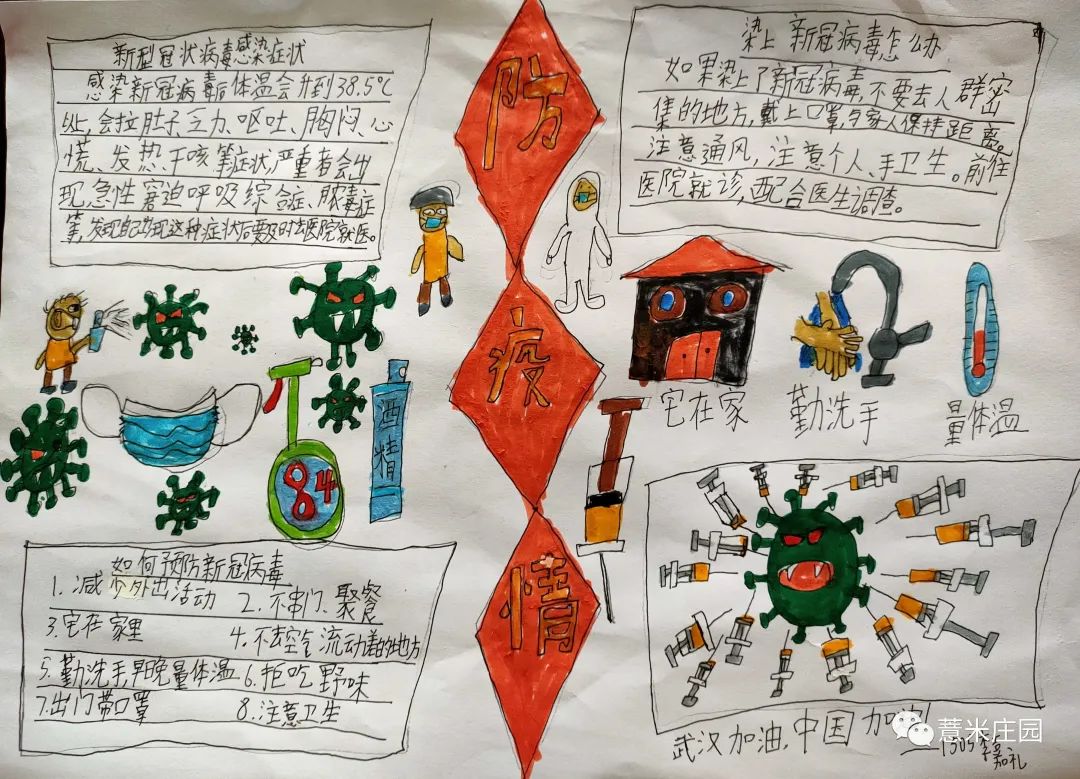 新型冠状病毒感染症状
感染新冠病毒后体温会升到38.5℃
以上,会拉肚子、乏力、呕吐、胸闷、心
慌、发热、干咳等症状,严重者会出
现急性窘迫呼吸综合症、脓毒症
等,发现自己出现这种症状后要及时去医院就医。
防
疫
情
染上新冠病毒怎么办
如果染上了新冠病毒,不要去人群密
集的地方,戴上口罩,与家人保持距离。
注意通风,注意个人、手卫生。前往
医院就诊,配合医生调查。
84
酒精
宅在家
勤洗手
量体温
如何预防新冠病毒
1.减少外出活动 2.不串门、聚餐
3.宅在家里 4.不去空气流动差的地方
5.勤洗手早晚量体温 6.拒吃野味
7.出门带口罩 8.注意卫生
武汉加油,中国加油!
薏米庄园